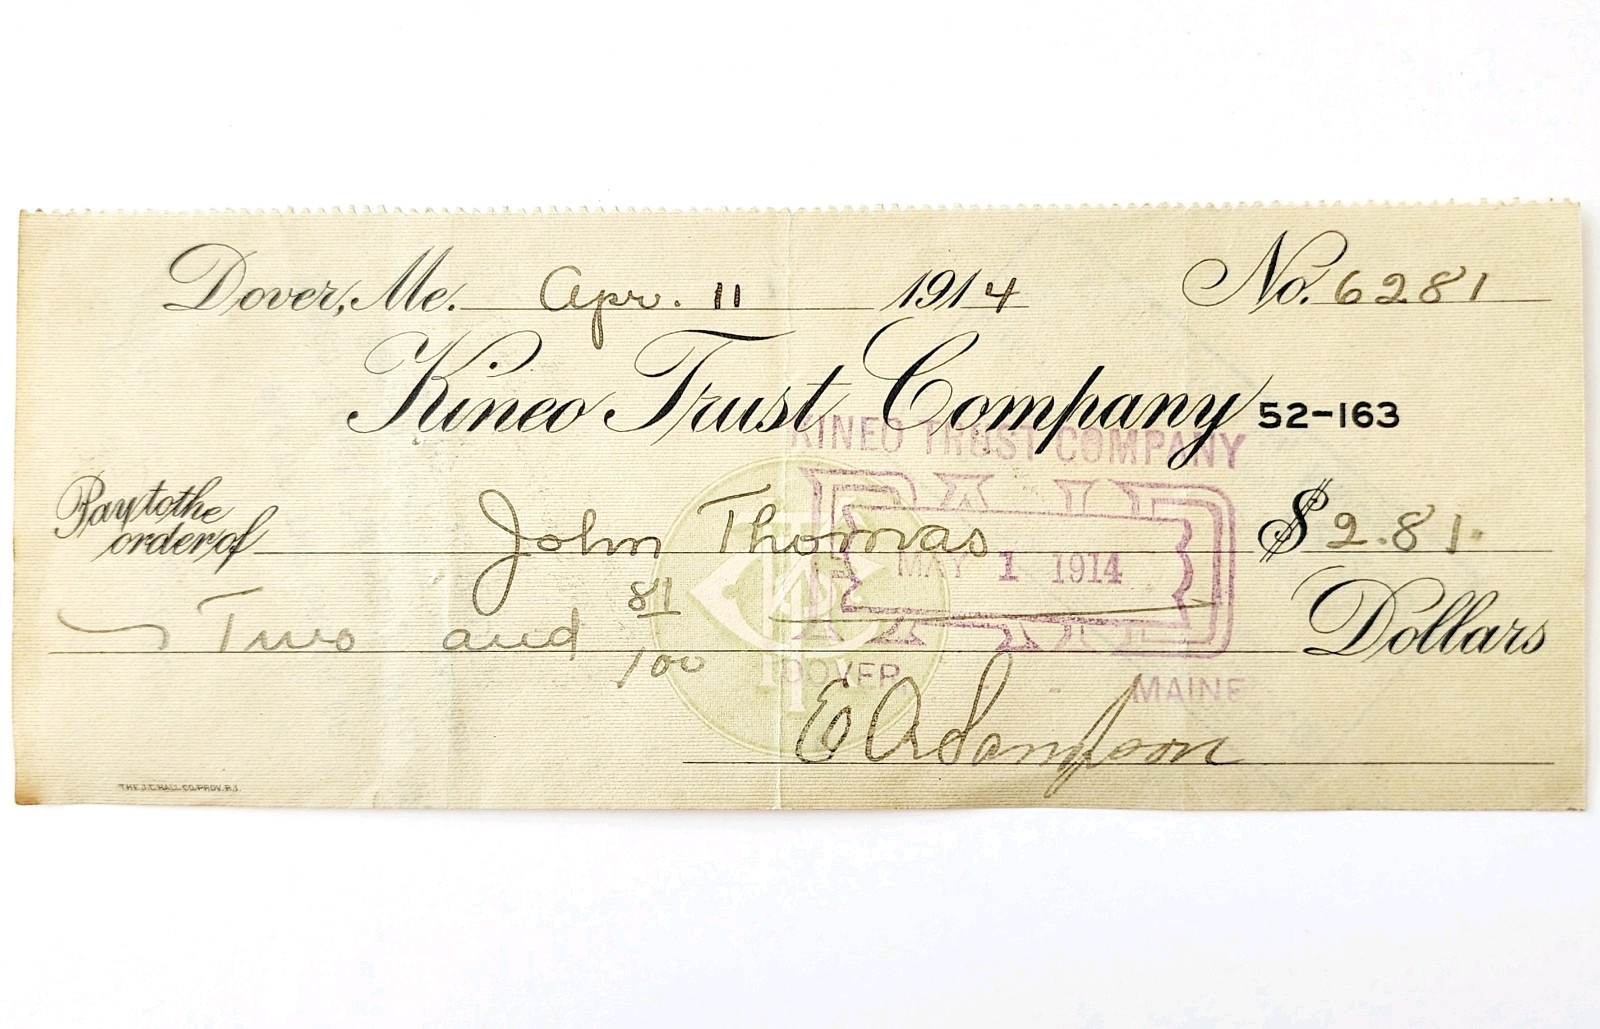 Dover, Me. Apr. 11 1914 No. 6281
Kineo Trust Company 52-163
KINEO TRUST COMPANY
Pay to the order of John Thomas $2.81.
PAID
MAY 1 1914
Two and 81/100 Dollars
DOVER, - - MAINE
E A Sampson
THE J.C. HALL CO. PROV. R.I.